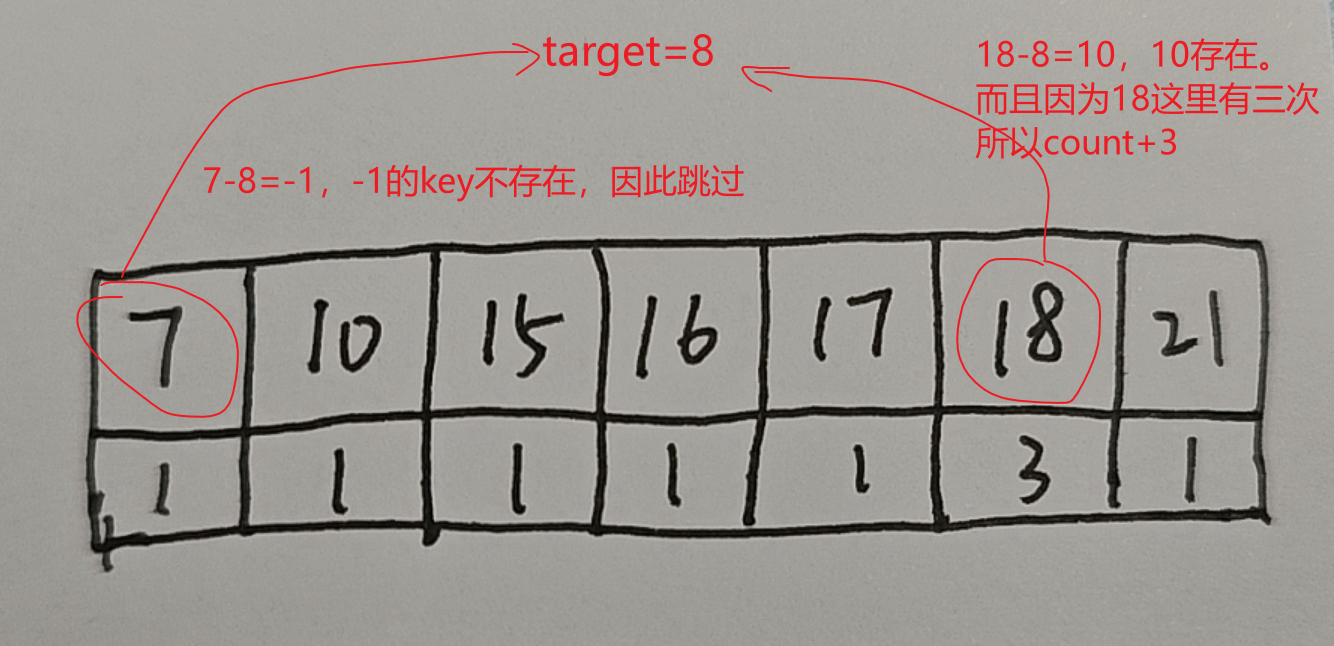 target=8
18-8=10，10存在。
而且因为18这里有三次
所以count+3
7-8=-1，-1的key不存在，因此跳过
7 10 15 16 17 18 21
1 1 1 1 1 3 1